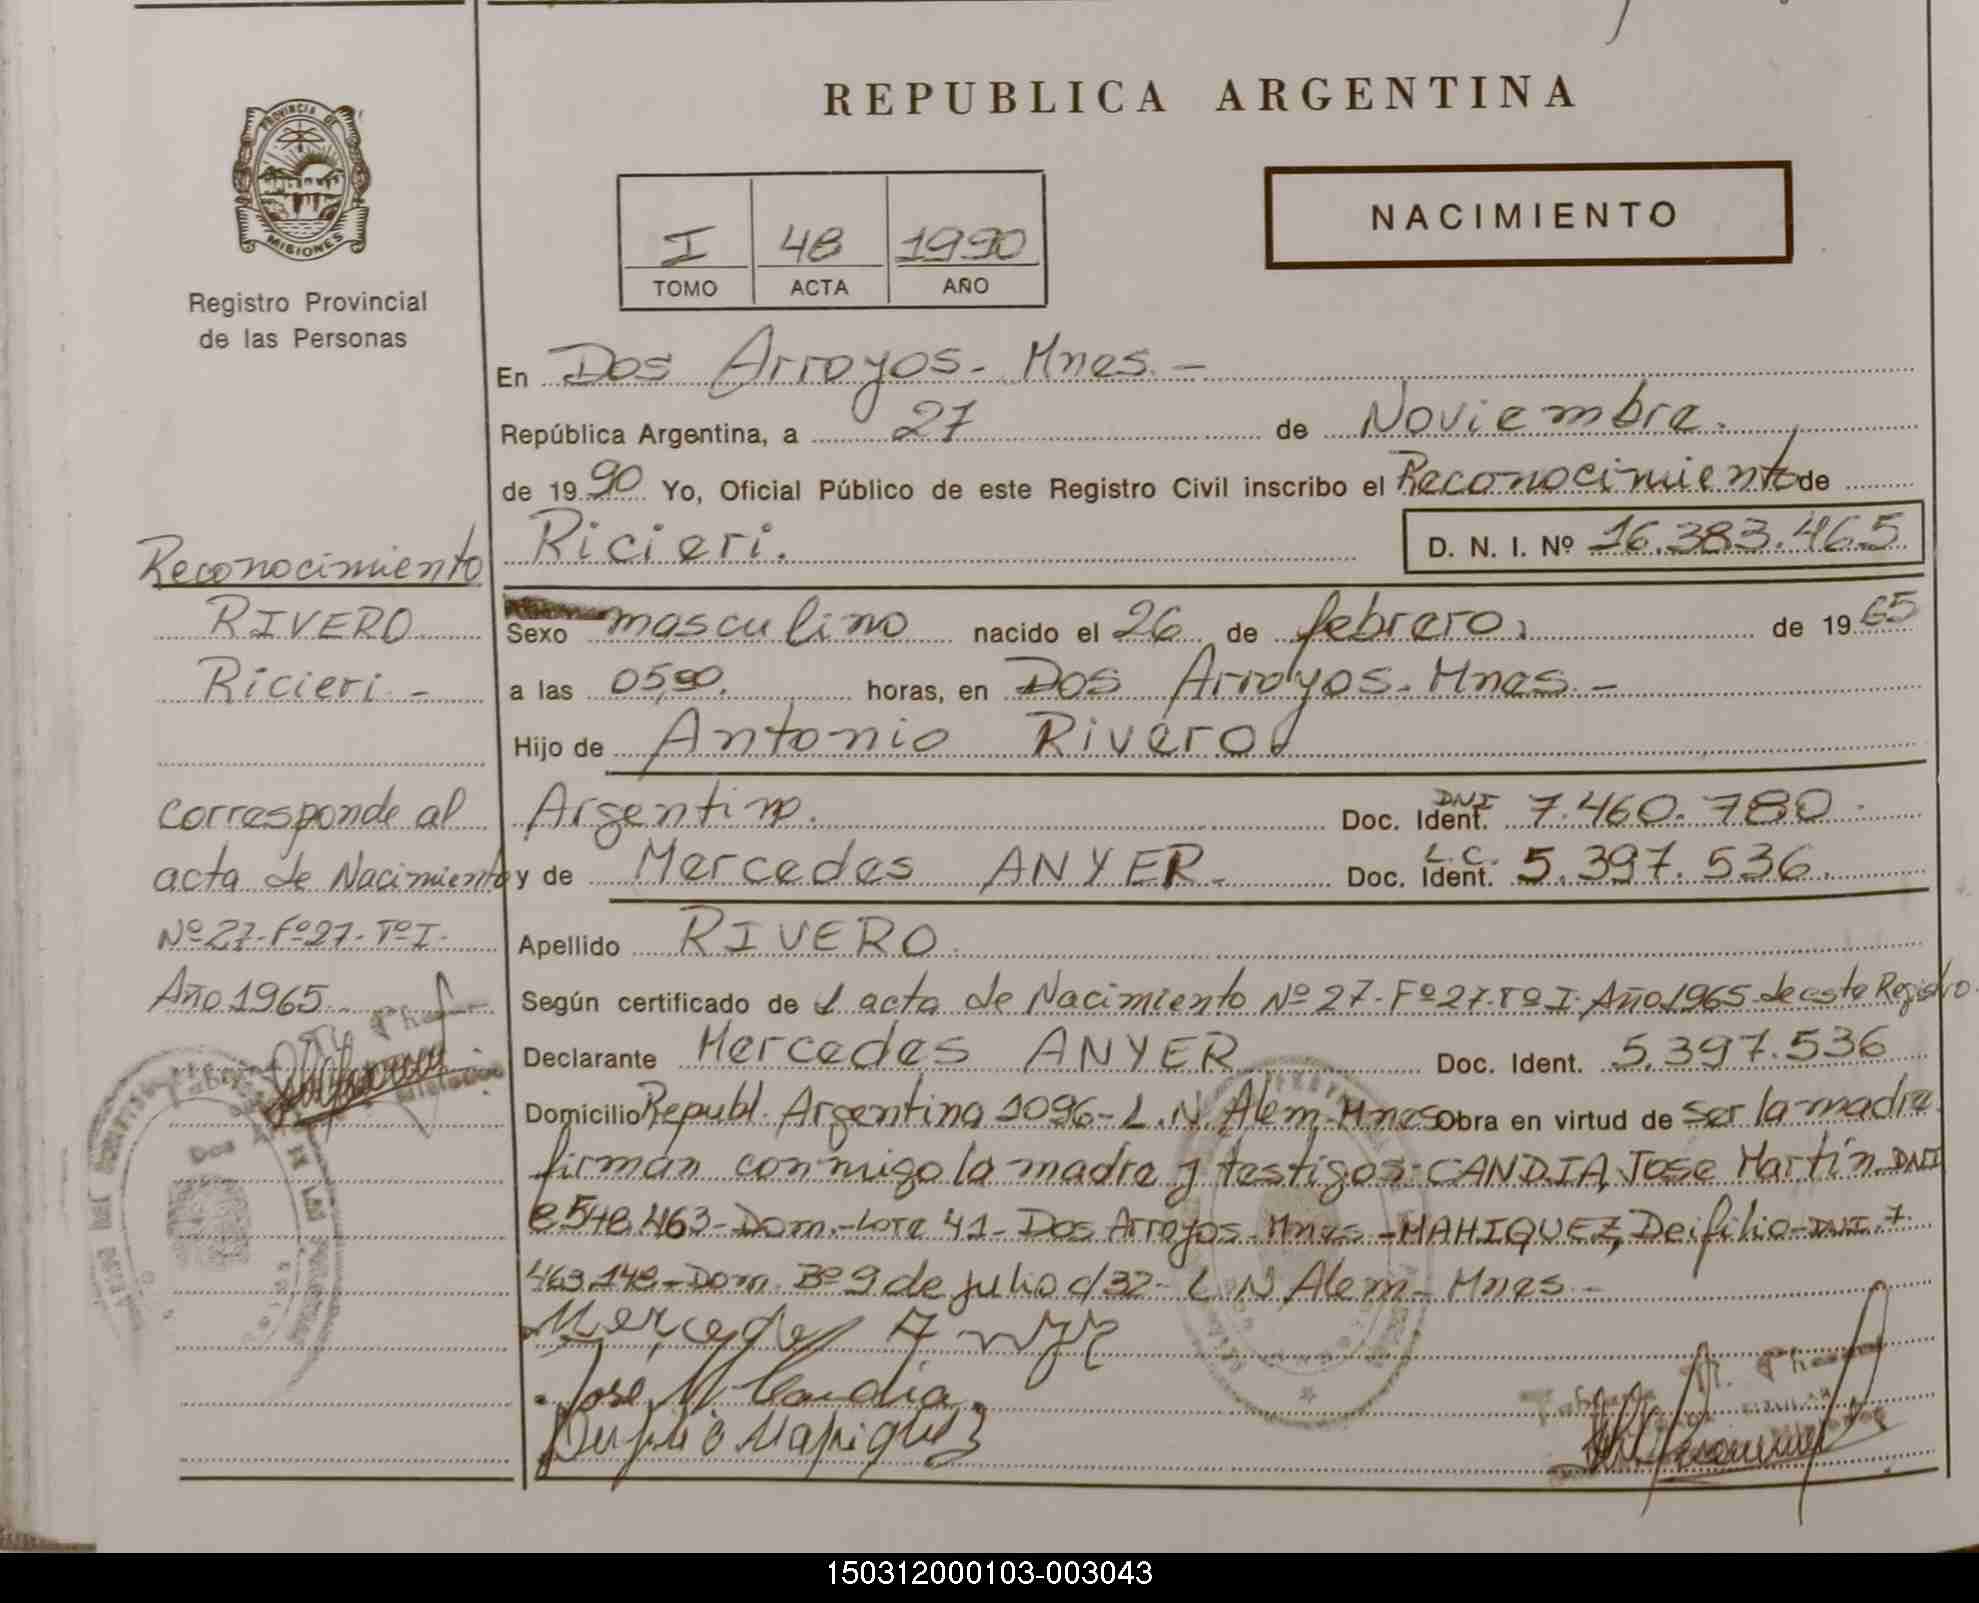 REPUBLICA ARGENTINA
PROVINCIA DE
MISIONES
Registro Provincial
de las Personas
I 48 1990
TOMO ACTA AÑO
NACIMIENTO
En Dos Arroyos - Mnes. -
República Argentina, a 27 de Noviembre.
de 19 90 Yo, Oficial Público de este Registro Civil inscribo el Reconocimiento de
Ricieri. D. N. I. Nº 16.383.465
Sexo masculino nacido el 26 de febrero, de 19 65
a las horas, en Dos Arroyos - Mnes. -
Hijo de Antonio Rivero.
Argentino. Doc. Ident. DNI 7.460.780.
y de Mercedes ANYER. Doc. Ident. L.C. 5.397.536.
Apellido RIVERO.
Según certificado de acta de Nacimiento Nº 27 - Fº 27 - Tº I - Año 1965 - de este Registro
Declarante Mercedes ANYER Doc. Ident. 5.397.536
Domicilio Republ. Argentina 1096 - L. N. Alem - Mnes Obra en virtud de ser la madre.
firman conmigo la madre y testigos: CANDIA, Jose Martín DNI
8.548.463 - Dom. - Lote 41 - Dos Arroyos - Mnes - MAHIQUEZ, Deifilio - DNI. 7.
463.149 - Dom. Bº 9 de julio c/32 - L. N Alem - Mnes. -
Jose M Candia
Reconocimiento
RIVERO
Ricieri -
corresponde al
acta de Nacimiento
Nº 27 - Fº 27 - Tº I -
Año 1965
Dos
150312000103-003043